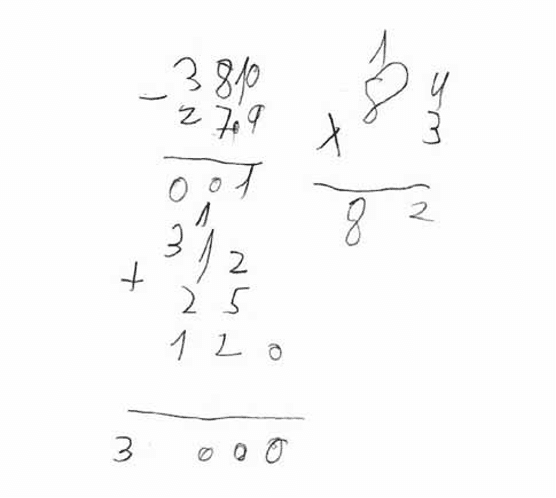 - 3 8 10
2 7. 9
0 0 1
1
3 1 2
+
2 5
1 2 0
3 0 0 0
1
8 4
x 3
8 2